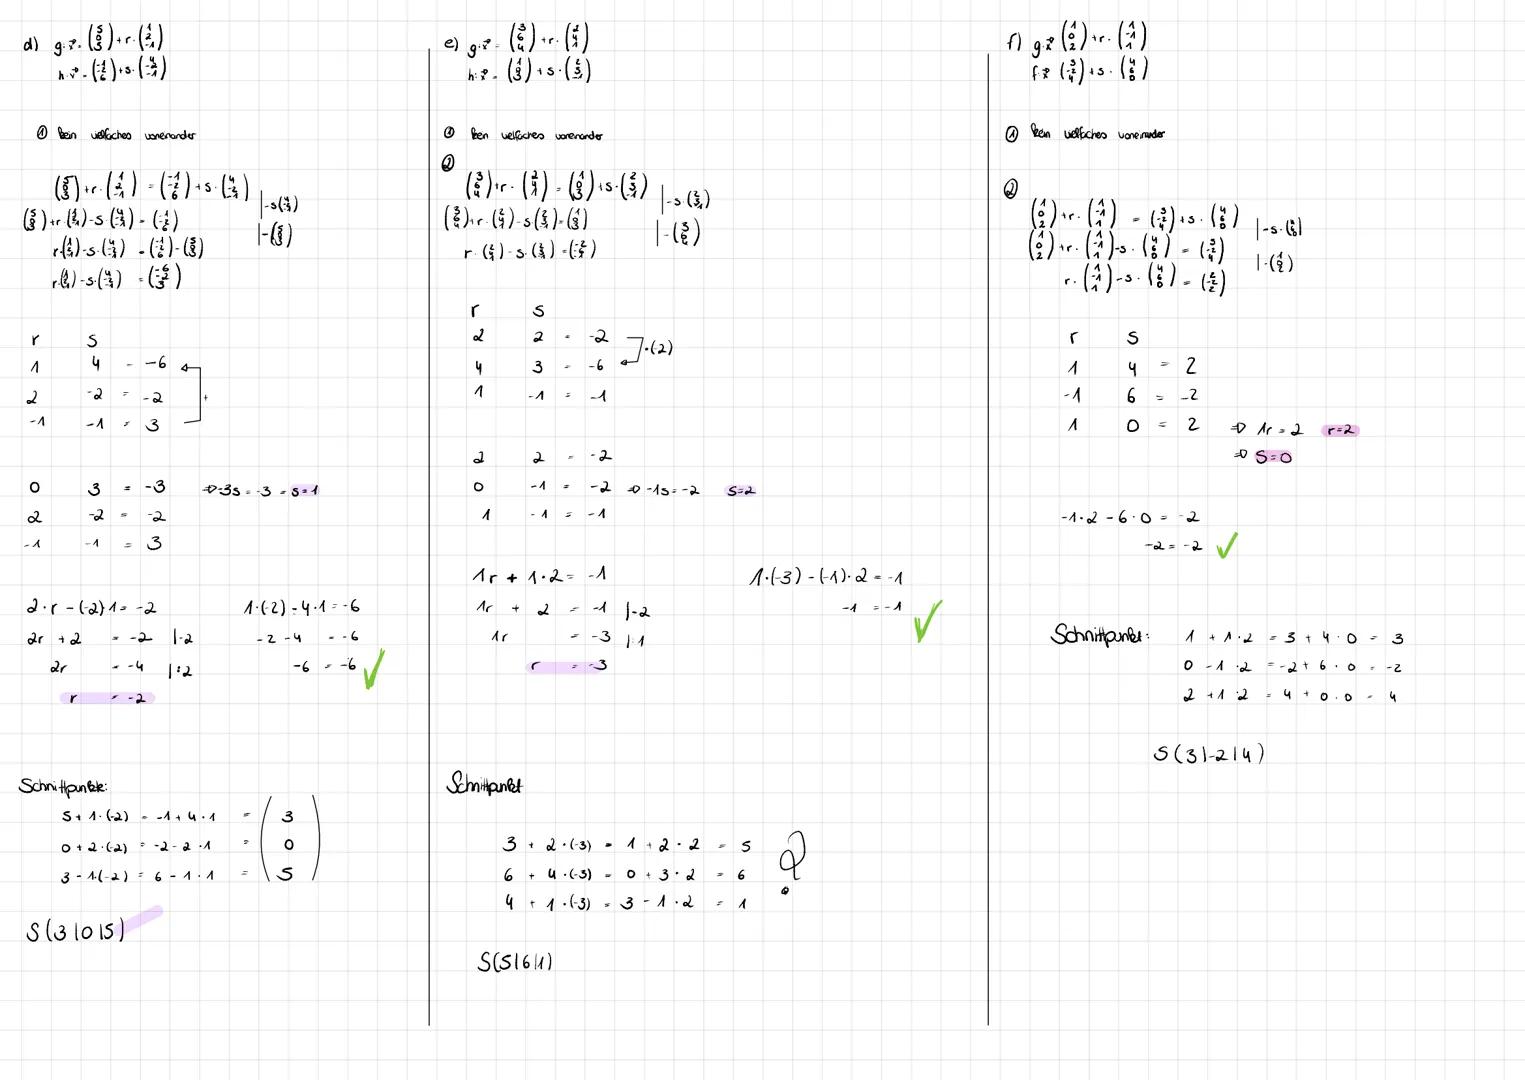 d) g:x⃗ = (5 0 3) + r · (1 2 -1)
h:x⃗ = (-1 -2 6) + s · (4 -2 -1)
① kein vielfaches voneinander
(5 0 3) + r · (1 2 -1) = (-1 -2 6) + s · (4 -2 -1) | -s(4 -2 -1)
(5 0 3) + r · (1 2 -1) - s · (4 -2 -1) = (-1 -2 6) | -(5 0 3)
r · (1 2 -1) - s · (4 -2 -1) = (-1 -2 6) - (5 0 3)
r · (1 2 -1) - s · (4 -2 -1) = (-6 -2 3)
r s
1 4 = -6
2 -2 = -2 +
-1 -1 = 3
0 3 = -3 ⇒ -3s = -3 = s=1
2 -2 = -2
-1 -1 = 3
2·r - (-2)1 = -2
2r + 2 = -2 |-2
2r = -4 |:2
r = -2
1·(-2) - 4·1 = -6
-2 - 4 = -6
-6 = -6 ✓
Schnittpunkte:
5 + 1·(-2) = -1 + 4·1 = 3
0 + 2·(-2) = -2 - 2·1 = 0
3 - 1(-2) = 6 - 1·1 = 5
S(3|0|5)
e) g:x⃗ = (3 6 4) + r · (2 4 1)
h:x⃗ = (1 0 3) + s · (2 3 -1)
① kein vielfaches voneinander
②
(3 6 4) + r · (2 4 1) = (1 0 3) + s · (2 3 -1) | -s · (2 3 -1)
(3 6 4) + r · (2 4 1) - s (2 3 -1) = (1 0 3) | -(3 6 4)
r · (2 4 1) - s · (2 3 -1) = (-2 -6 -1)
r s
2 2 = -2
4 3 = -6 ·(-2)
1 -1 = -1
2 2 = -2
0 -1 = -2 ⇒ -1s = -2 s=2
1 -1 = -1
1r + 1·2 = -1
1r + 2 = -1 |-2
1r = -3 |:1
r = -3
1·(-3) - (-1)·2 = -1
-1 = -1 ✓
Schnittpunkt
3 + 2·(-3) = 1 + 2·2 = 5
6 + 4·(-3) = 0 + 3·2 = 6 ?
4 + 1·(-3) = 3 - 1·2 = 1
S(5|6|1)
f) g:x⃗ (1 0 2) + r · (1 -1 1)
f:x⃗ (3 -2 4) + s · (4 6 0)
① kein vielfaches voneinander
②
(1 0 2) + r · (1 -1 1) = (3 -2 4) + s · (4 6 0) | -s · (4 6 0)
(1 0 2) + r · (1 -1 1) - s · (4 6 0) = (3 -2 4) | -(1 0 2)
r · (1 -1 1) - s · (4 6 0) = (2 -2 2)
r s
1 4 = 2
-1 6 = -2
1 0 = 2 ⇒ 1r = 2 r=2
⇒ S=0
-1·2 - 6·0 = -2
-2 = -2 ✓
Schnittpunkt:
1 + 1·2 = 3 + 4·0 = 3
0 - 1·2 = -2 + 6·0 = -2
2 + 1·2 = 4 + 0·0 = 4
S(3|-2|4)